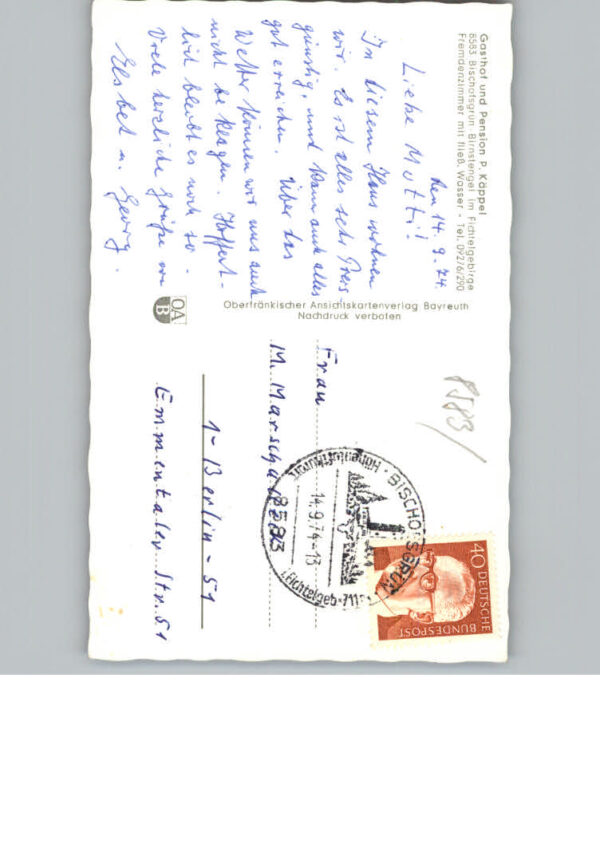 Gasthof und Pension P. Käppel
8583 Bischofsgrün, Birnstengel im Fichtelgebirge
Fremdenzimmer mit fließ. Wasser - Tel. 09276/290
Den 14.9.74.
Liebe Mutti!
In diesem Haus wohnen
wir. Es ist alles sehr Preis
günstig, und kann auch alles
gut erreichen. Über das
Wetter können wir uns auch
nicht beklagen. Hoffent-
lich bleibt es noch so.
Viele herzliche Grüße von
Elsbet u. Georg.
Oberfränkischer Ansichtskartenverlag Bayreuth
Nachdruck verboten
OA
B
8583/
Frau
M.
1-Berlin-51
Emmentaler Str. 51
BISCHOFSGRÜN
Höhenluftkurort
14.9.74-13
8583
(Fichtelgeb) 711m
40
DEUTSCHE
BUNDESPOST